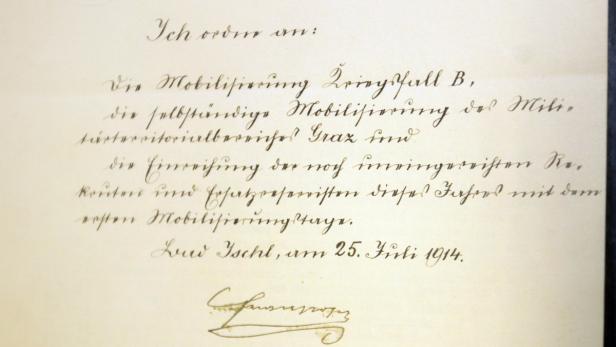 Ich ordne an:
Die Mobilisierung Kriegsfall B,
die selbständige Mobilisierung des Mili-
tärterritorialbereiches Graz und
die Einreihung der noch uneingereihten Re-
kruten und Ersatzreservisten dieses Jahres mit dem
ersten Mobilisierungstage.
Bad Ischl, am 25. Juli 1914.